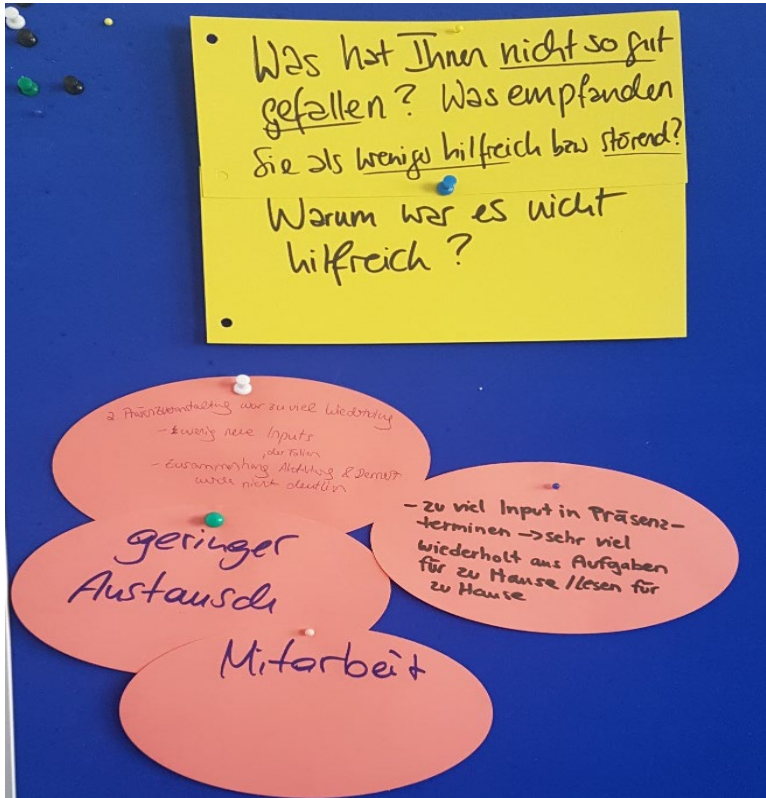 Was hat Ihnen nicht so gut
gefallen? Was empfanden
Sie als weniger hilfreich bzw störend?
Warum war es nicht
hilfreich?
2. Präsenzveranstaltung war zu viel Wiederholung
- wenig neue Inputs
der Folien
- Zusammenhang &
wurde nicht deutlich
geringer
Austausch
- zu viel Input in Präsenz-
terminen -> sehr viel
wiederholt aus Aufgaben
für zu Hause / Lesen für
zu Hause
Mitarbeit